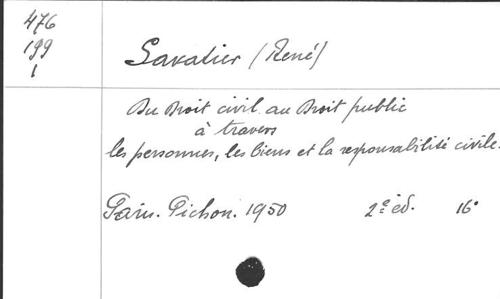 476
199
1
Savatier (René)
Du Droit civil au Droit public
à travers
les personnes, les biens et la responsabilité civile.
Paris. Pichon. 1950 2e éd. 16°